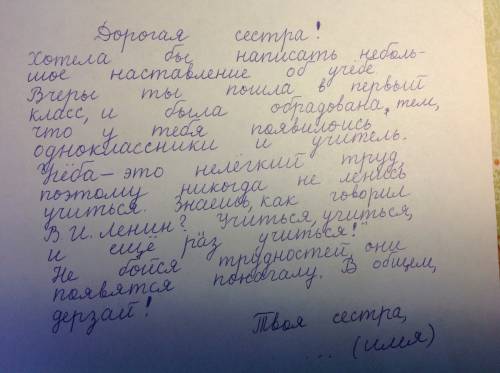 Дорогая сестра!
Хотела бы написать неболь-
шое наставление об учёбе
Вчеры ты пошла в первый
класс, и была обрадована, тем,
что у тебя появились
одноклассники и учитель.
Учёба – это нелёгкий труд,
поэтому никогда не ленись
учиться. Знаешь, как говорил
В. И. Ленин? "Учиться, учиться,
и ещё раз учиться!"
Не бойся трудностей, они
появятся поначалу. В общем,
дерзай!
Твоя сестра,
... (имя)